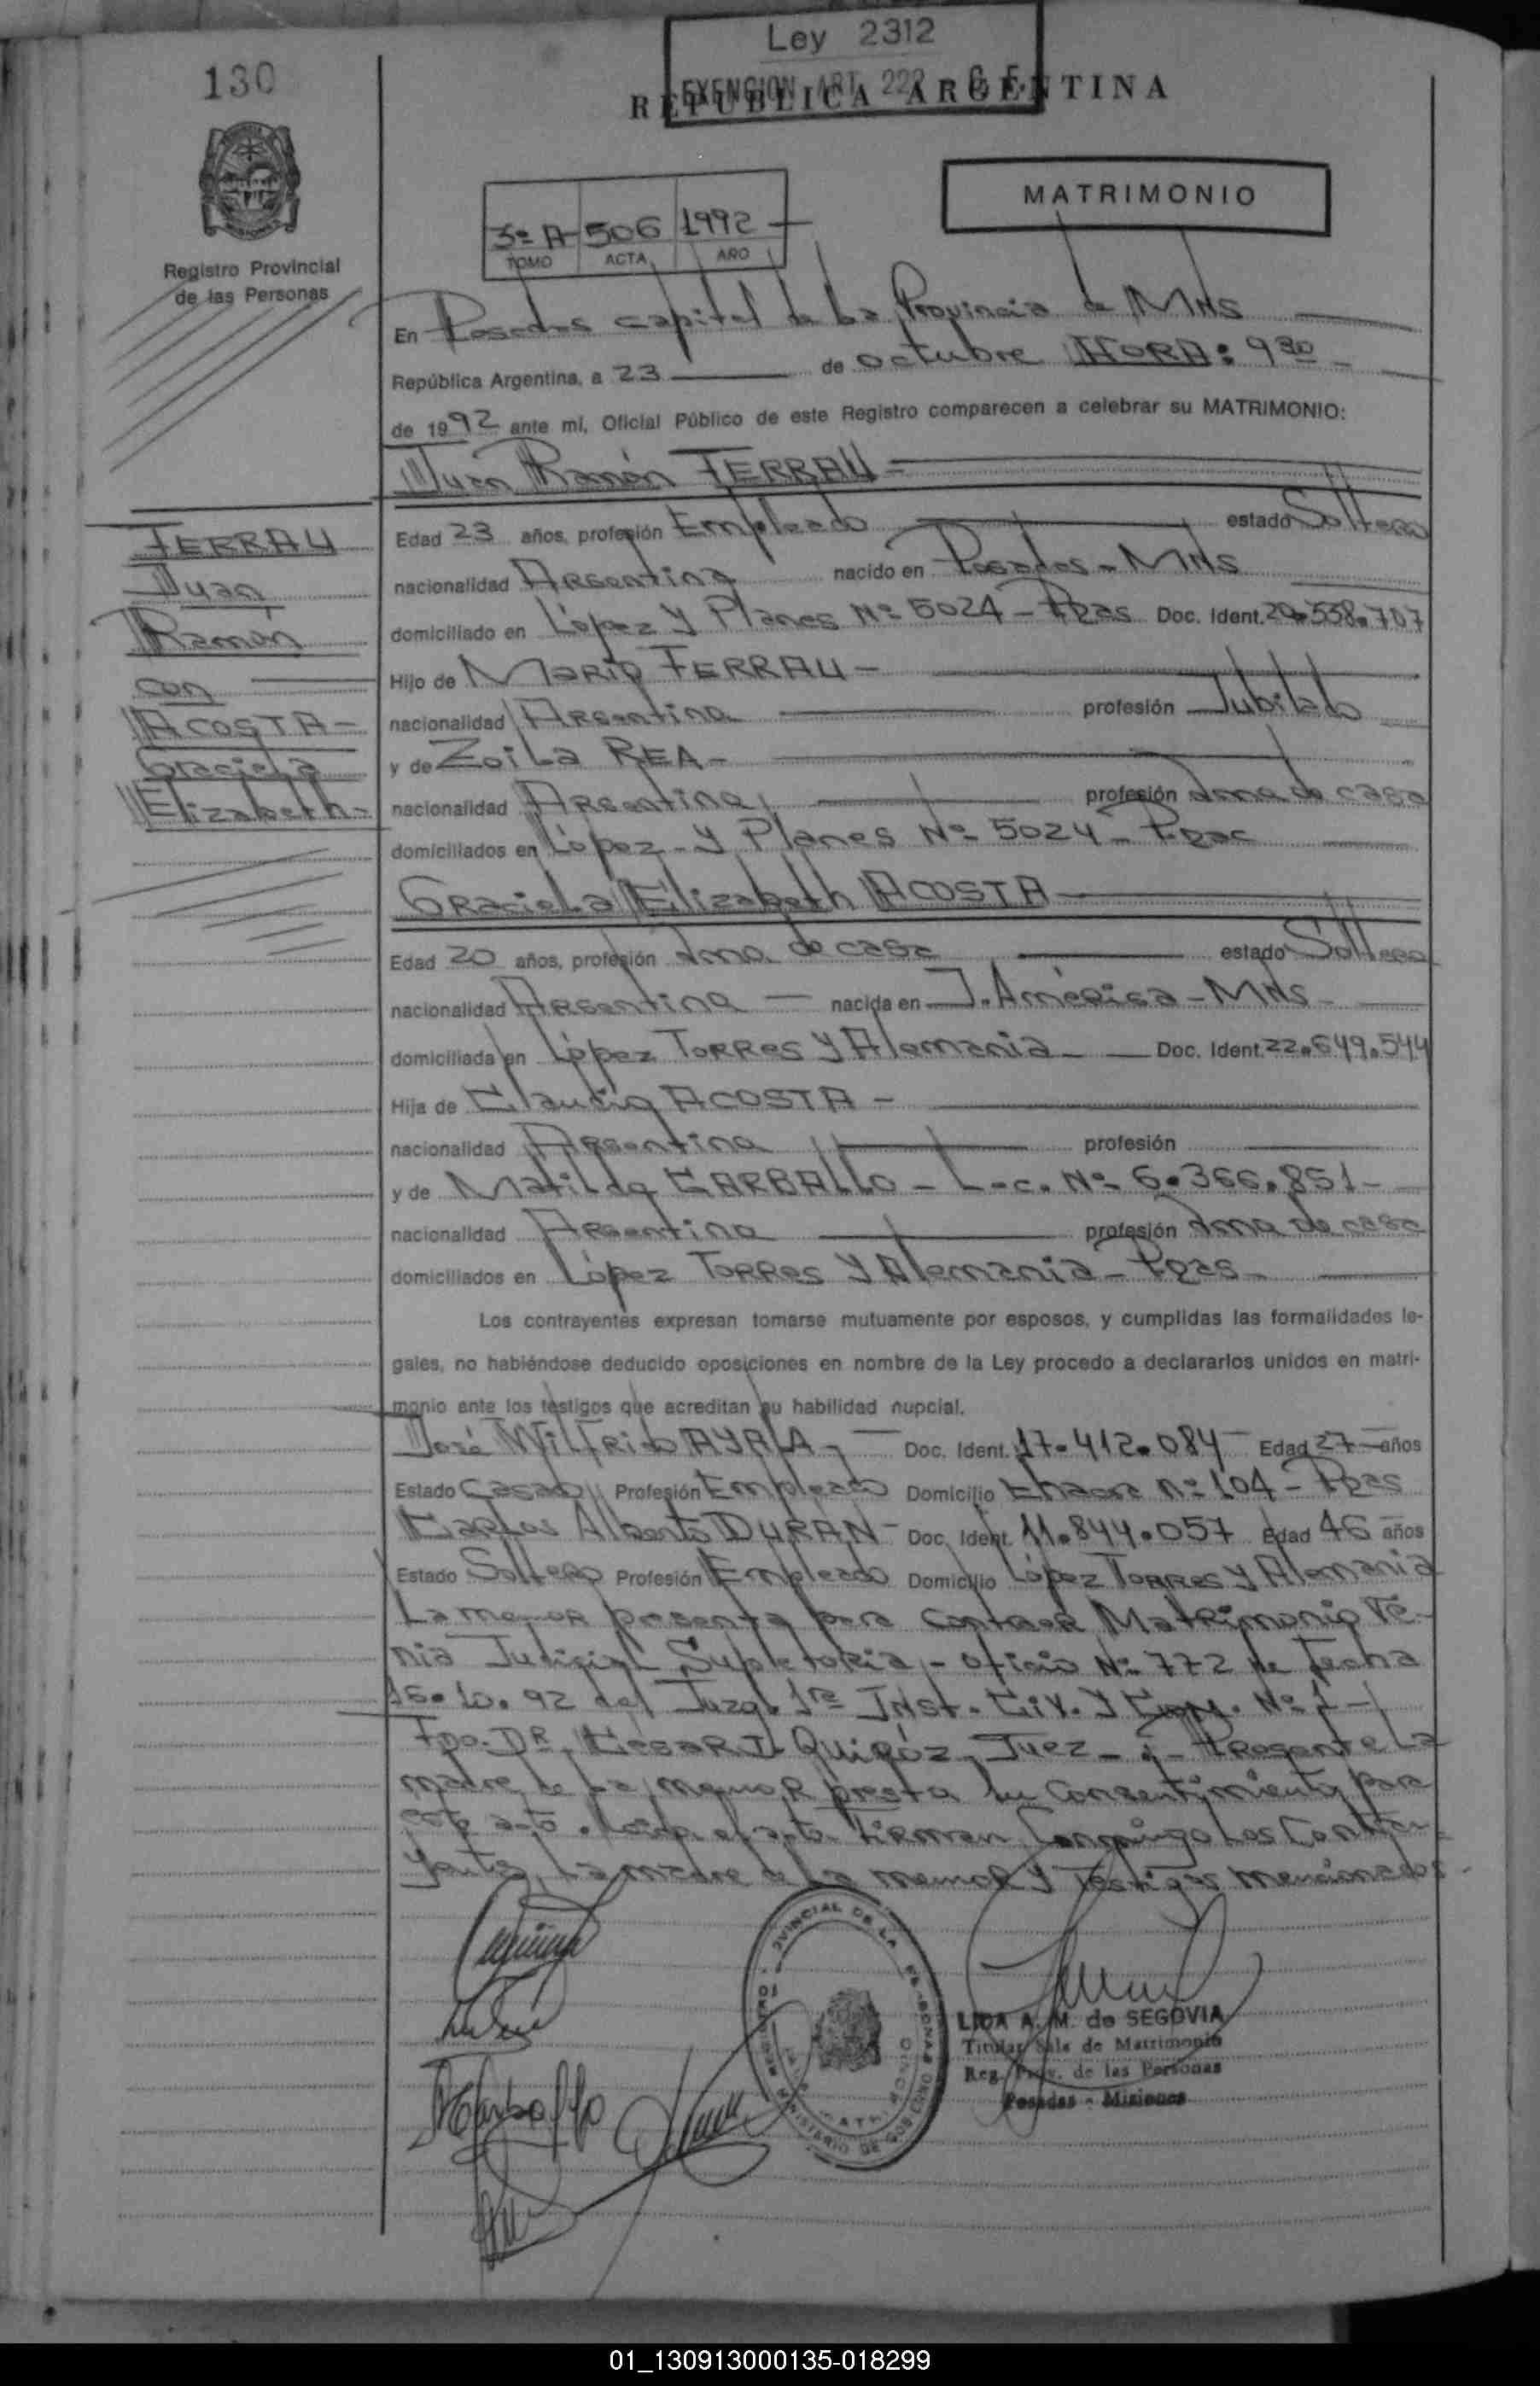 Ley 2312
EXENCION ART. 222 C.F.
130
REPUBLICA ARGENTINA
MATRIMONIO
3º A 506 1992
TOMO ACTA AÑO
Registro Provincial
de las Personas
En Posadas capital de La Provincia de MNS
República Argentina, a 23 de octubre HORA: 9 30
de 1992 ante mí, Oficial Público de este Registro comparecen a celebrar su MATRIMONIO:
Juan Ramón FERRAU
FERRAU
Juan
Ramón
con
ACOSTA
Graciela
Elizabeth
Edad 23 años, profesión Empleado estado Soltero
nacionalidad Argentina nacido en Posadas - MNS
domiciliado en López Y Planes Nº 5024 - Pdas Doc. Ident. 20.558.707
Hijo de Mario FERRAU -
nacionalidad Argentina profesión Jubilado
y de Zoila REA -
nacionalidad Argentina profesión Ama de casa
domiciliados en López Y Planes Nº 5024 - Pdas
Graciela Elizabeth ACOSTA
Edad 20 años, profesión Ama de casa estado Soltera
nacionalidad Argentina - nacida en J. América - MNS -
domiciliada en López Torres Y Alemania - Doc. Ident. 22.649.544
Hija de Claudio ACOSTA -
nacionalidad Argentina profesión
y de Matilde CARBALLO - L.c. Nº 6.366.851 -
nacionalidad Argentina profesión Ama de casa
domiciliados en López Torres Y Alemania - Pdas -
Los contrayentes expresan tomarse mutuamente por esposos, y cumplidas las formalidades le-
gales, no habiéndose deducido oposiciones en nombre de la Ley procedo a declararlos unidos en matri-
monio ante los testigos que acreditan su habilidad nupcial.
José Wilfrido AYALA - Doc. Ident. 17.412.084 Edad 27 años
Estado Casado Profesión Empleado Domicilio Nº 104 - Pdas
Carlos Alberto DURAN - Doc. Ident. 11.844.057 Edad 46 años
Estado Soltero Profesión Empleado Domicilio López Torres Y Alemania
La menor presenta para Contraer Matrimonio Ve-
nia Judicial Supletoria - oficio Nº 772 de fecha
16.10.92 del Juzg. 1ra Inst. Civ. Y Com. Nº 1 -
Fdo. Dr. César Quiróz, Juez - Presente La
madre de La menor presta su Consentimiento para
este acto. Leída el acta Firman Conmigo Los Contra-
yentes, La madre de La menor Y Testigos mencionados -
LIDA A. M. de SEGOVIA
Titular Sala de Matrimonio
Reg. Prov. de las Personas
Posadas - Misiones
MCarballo
01_130913000135-018299